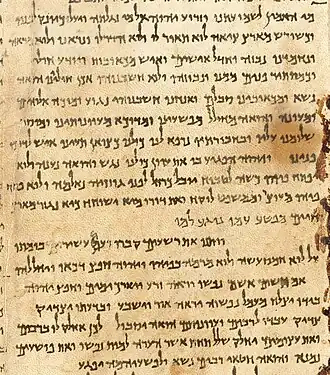 מי האמין לשמועתנו וזרוע יהוה אל מי נגלתה ויעל כיונק לפניו
וכשורש מארץ ציה לוא תאר לו ולוא הדר לו ונראנו ולוא מראה
ונחמדנו נבזה וחדל אישים ואיש מכאובות ויודע חולי
וכמסתר פנים ממנו ונבוזהו ולוא חשבנוהו אכן חוליינו הואה
נשא ומכאובינו סבלם ואנחנו חשבנוהו נגוע ומוכה אלוהים
ומעונה והואה מחולל מפשעינו ומדוכא מעוונותינו ומוסר
שלומנו עליו ובחבורתיו נרפא לנו כולנו כצואן תעינו איש לדרכו
פנינו ויהוה הפגיע בו את עוון כולנו נגש והואה נענה ולוא
פתח פיהו כשה לטבוח יובל כרחל לפני גוזזיה נאלמה ולוא פתח
פיהו מעוצר וממשפט לוקח ואת דורו מיא ישוחח כיא נגזר מארץ
חיים מפשע עמו נוגע למו
ויתנו את רשעים קברו ועם עשיר בומתו
על לוא חמס עשה ולוא מרמה בפיהו ויהוה חפץ דכאו ויחללהו
אם תשים אשם נפשו יראה זרע ויארך ימים וחפץ יהוה
בידו יצלח מעמל נפשוה יראה אור וישבע ובדעתו יצדיק
צדיק עבדו לרבים ועוונותם הואה יסבול לכן אחלק לו ברבים
ואת עצומים יחלק שלל תחת אשר הערה למות נפשו ואת פושעים
נמנה והואה חטאי רבים נשא ולפשעיהמה יפגע